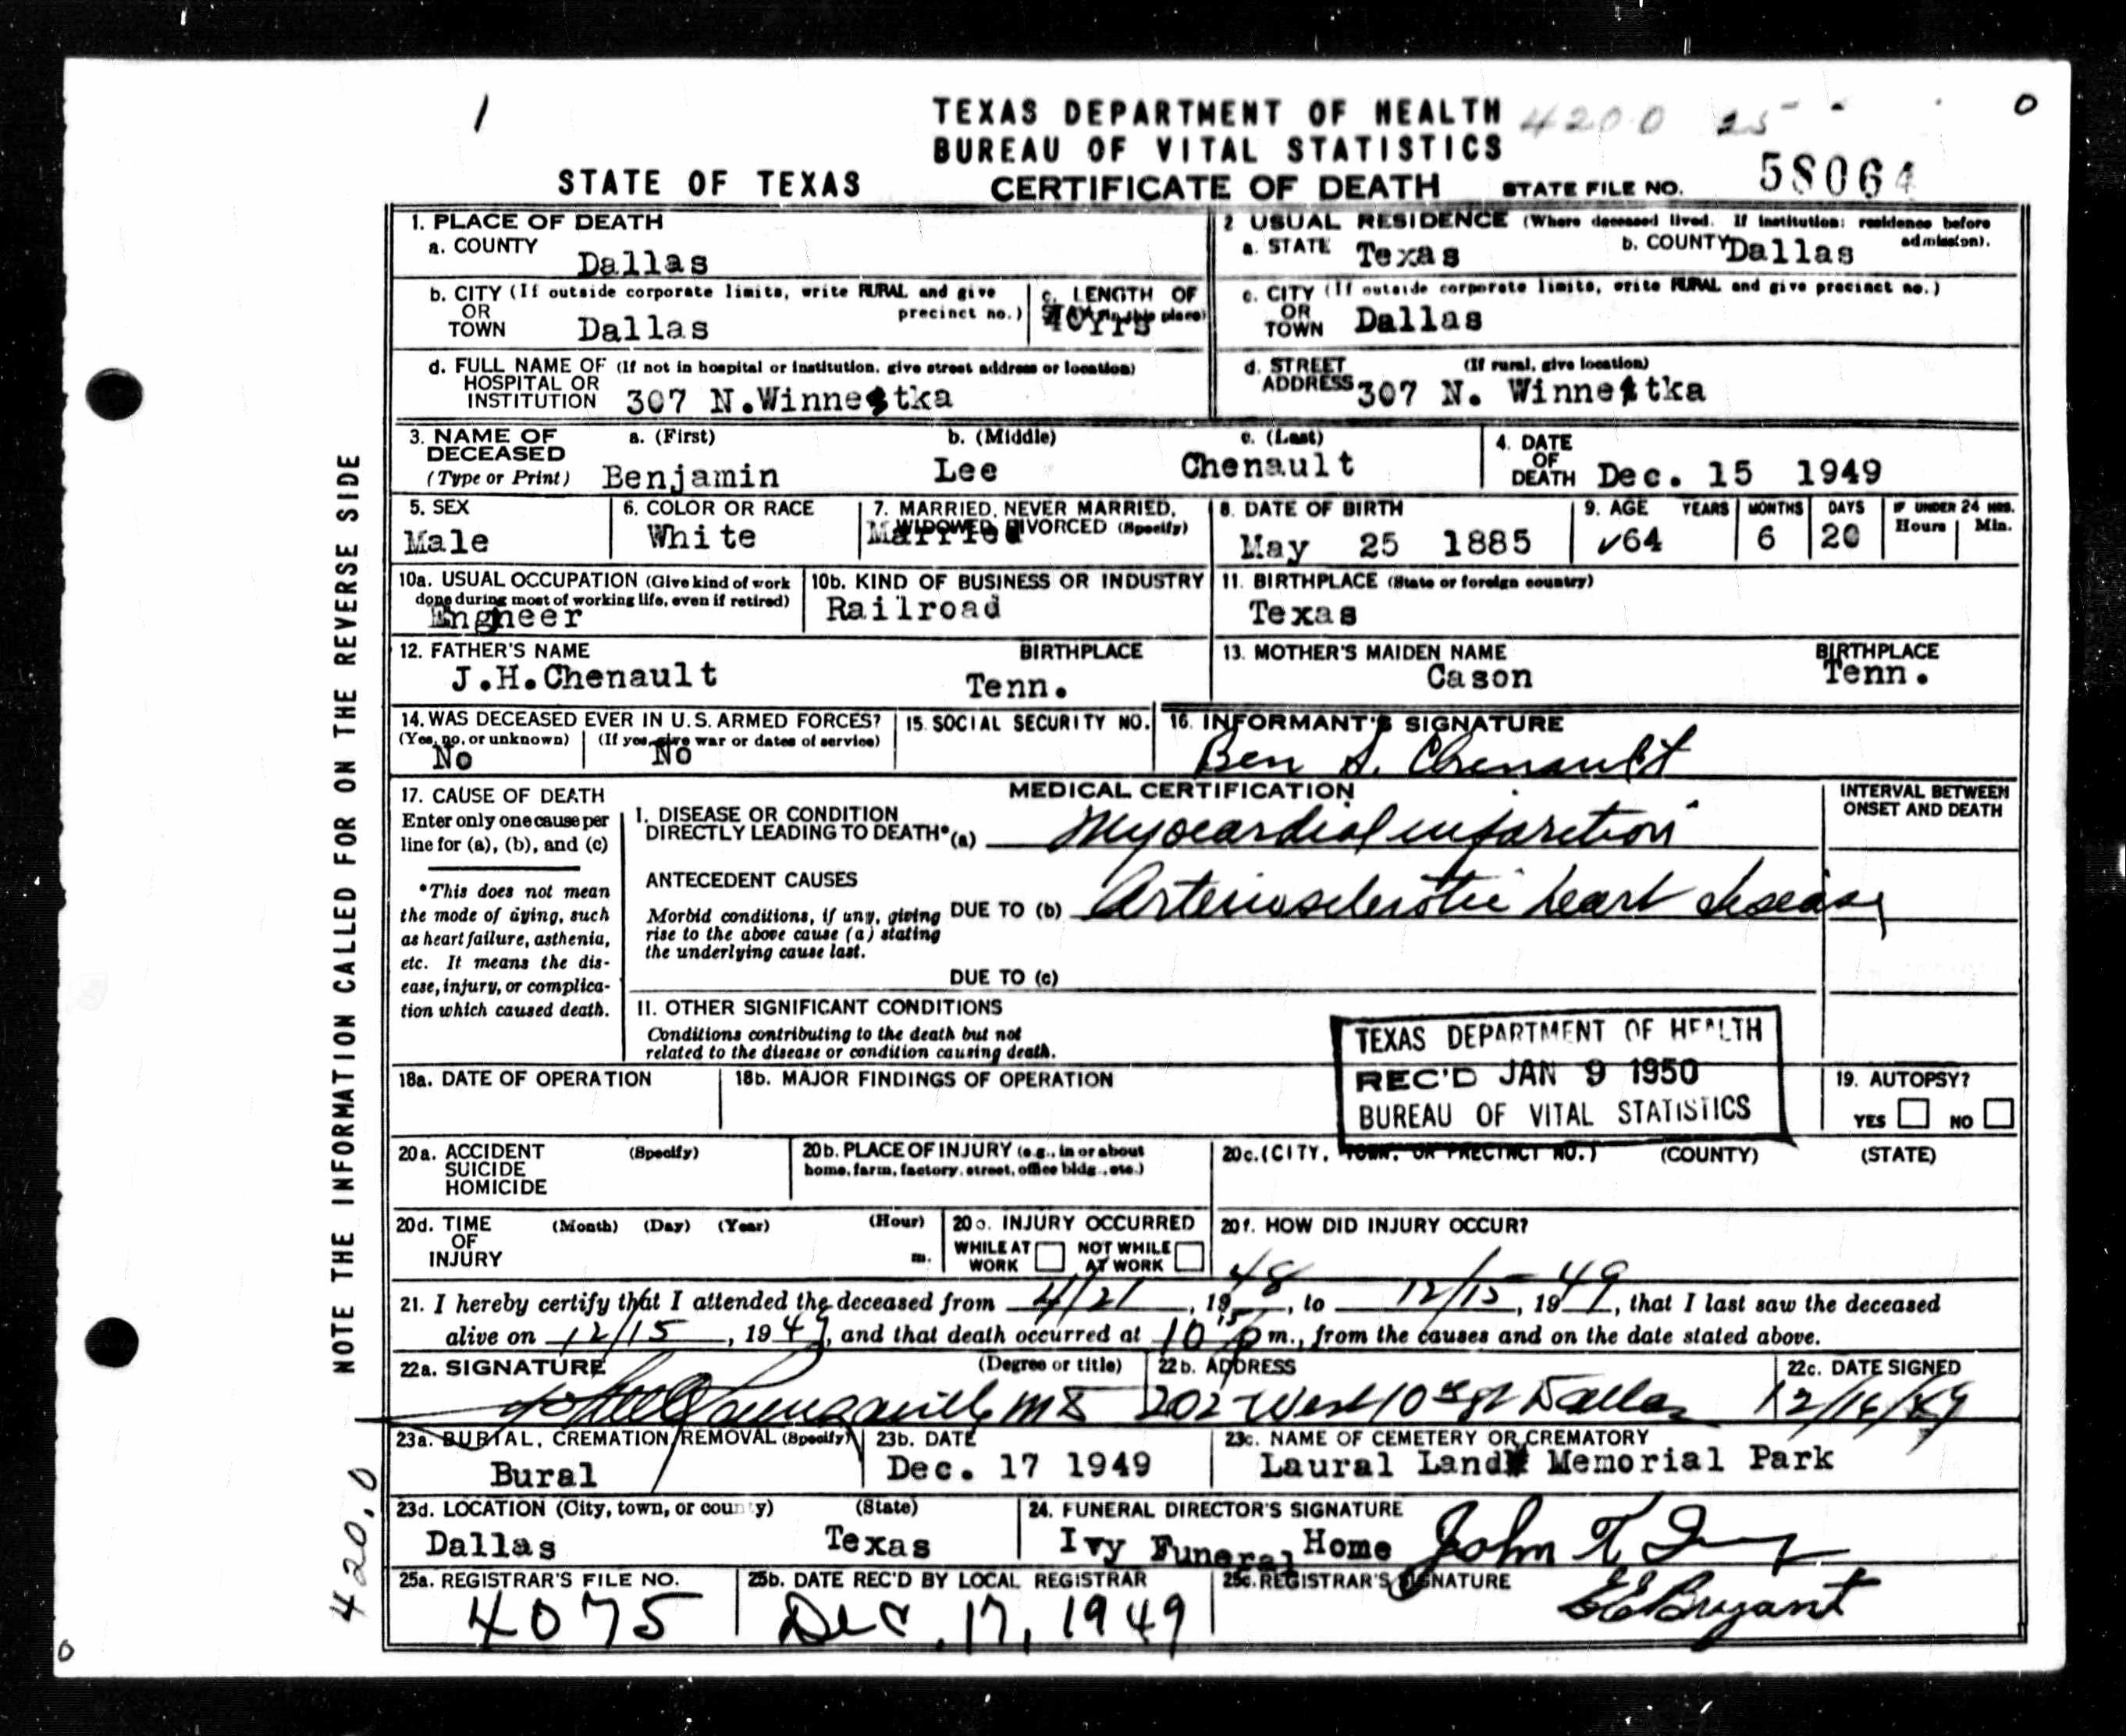 1
TEXAS DEPARTMENT OF HEALTH 4200 25
0
BUREAU OF VITAL STATISTICS
STATE OF TEXAS CERTIFICATE OF DEATH STATE FILE NO. 58064
NOTE THE INFORMATION CALLED FOR ON THE REVERSE SIDE
1. PLACE OF DEATH
a. COUNTY Dallas
2 USUAL RESIDENCE (Where deceased lived. If institution: residence before admission).
a. STATE Texas b. COUNTY Dallas
b. CITY (If outside corporate limits, write RURAL and give precinct no.)
OR
TOWN Dallas
c. LENGTH OF STAY (in this place) 40Yrs
c. CITY (If outside corporate limits, write RURAL and give precinct no.)
OR
TOWN Dallas
d. FULL NAME OF (If not in hospital or institution, give street address or location)
HOSPITAL OR
INSTITUTION 307 N.Winnestka
d. STREET (If rural, give location)
ADDRESS 307 N. Winnetka
3. NAME OF DECEASED (Type or Print)
a. (First) b. (Middle) c. (Last)
Benjamin Lee Chenault
4. DATE OF DEATH Dec. 15 1949
5. SEX Male
6. COLOR OR RACE White
7. MARRIED, NEVER MARRIED, WIDOWED, DIVORCED (Specify) Married
8. DATE OF BIRTH May 25 1885
9. AGE YEARS 64 MONTHS 6 DAYS 20 IF UNDER 24 HRS. Hours Min.
10a. USUAL OCCUPATION (Give kind of work done during most of working life, even if retired) Engneer
10b. KIND OF BUSINESS OR INDUSTRY Railroad
11. BIRTHPLACE (State or foreign country) Texas
12. FATHER'S NAME BIRTHPLACE
J.H.Chenault Tenn.
13. MOTHER'S MAIDEN NAME BIRTHPLACE
Cason Tenn.
14. WAS DECEASED EVER IN U.S. ARMED FORCES?
(Yes, no, or unknown) (If yes, give war or dates of service)
No No
15. SOCIAL SECURITY NO.
16. INFORMANT'S SIGNATURE
Ben S. Chenault
17. CAUSE OF DEATH
Enter only one cause per
line for (a), (b), and (c)
*This does not mean
the mode of dying, such
as heart failure, asthenia,
etc. It means the dis-
ease, injury, or complica-
tion which caused death.
MEDICAL CERTIFICATION
INTERVAL BETWEEN
ONSET AND DEATH
I. DISEASE OR CONDITION
DIRECTLY LEADING TO DEATH* (a) Myocardial infarction
ANTECEDENT CAUSES
Morbid conditions, if any, giving
rise to the above cause (a) stating
the underlying cause last.
DUE TO (b) Arteriosclerotic heart disease
DUE TO (c)
II. OTHER SIGNIFICANT CONDITIONS
Conditions contributing to the death but not
related to the disease or condition causing death.
TEXAS DEPARTMENT OF HEALTH
REC'D JAN 9 1950
BUREAU OF VITAL STATISTICS
18a. DATE OF OPERATION
18b. MAJOR FINDINGS OF OPERATION
19. AUTOPSY?
YES NO
20a. ACCIDENT (Specify)
SUICIDE
HOMICIDE
20b. PLACE OF INJURY (e.g., in or about
home, farm, factory, street, office bldg., etc.)
20c. (CITY, TOWN, OR PRECINCT NO.) (COUNTY) (STATE)
20d. TIME (Month) (Day) (Year) (Hour)
OF
INJURY m.
20e. INJURY OCCURRED
WHILE AT WORK NOT WHILE AT WORK
20f. HOW DID INJURY OCCUR?
21. I hereby certify that I attended the deceased from 4/21, 1948, to 12/15, 1949, that I last saw the deceased
alive on 12/15, 1949, and that death occurred at 10 15 p m., from the causes and on the date stated above.
22a. SIGNATURE (Degree or title)
22b. ADDRESS 202 West 10th St Dallas
22c. DATE SIGNED 12/16/49
23a. BURIAL, CREMATION, REMOVAL (Specify) Bural
23b. DATE Dec. 17 1949
23c. NAME OF CEMETERY OR CREMATORY
Laural Land Memorial Park
23d. LOCATION (City, town, or county) (State)
Dallas Texas
24. FUNERAL DIRECTOR'S SIGNATURE
Ivy Funeral Home John
25a. REGISTRAR'S FILE NO. 4075
25b. DATE REC'D BY LOCAL REGISTRAR Dec. 17, 1949
25c. REGISTRAR'S SIGNATURE
EE Bryant
420.0
0